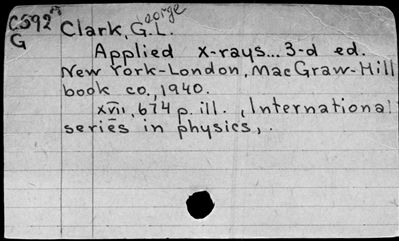 George
C592
G
Clark, G.L.
Applied x-rays... 3-d ed.
New York-London, MacGraw-Hill
book co., 1940.
xvii, 674 p. ill. , International
series in physics, .